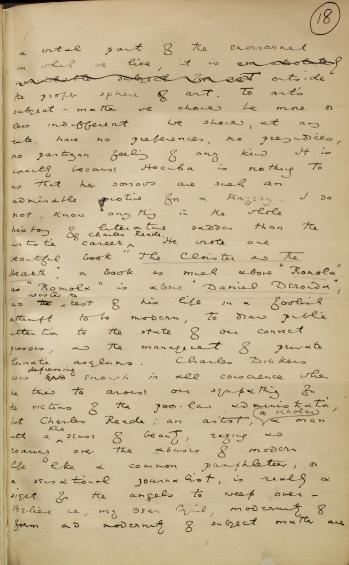 18
a vital part of the environment
in which we live, it is an absolutely
unsuitable subject for art outside
the proper sphere of art. To art's
subject-matter we should be more or
less indifferent. We should, at any
rate, have no preferences, no prejudices,
no partisan feeling of any kind. It is
exactly because Hecuba is nothing to
us that her sorrows are such an
admirable motive for a tragedy. I do
not know anything in the whole
history of literature sadder than the
artistic career of Charles Reade. He wrote one
beautiful book "The Cloister and the
Hearth" a book as much above "Romola"
as "Romola" is above "Daniel Deronda",
and wasted the rest of his life in a foolish
attempt to be modern, to draw public
attention to the state of our convict
prisons, and the management of private
lunatic asylums. Charles Dickens
was depressing enough in all conscience when
he tried to arouse our sympathy for
the victims of the poor-law administration,
but Charles Reade, an artist, a scholar, a man
with a true sense of beauty, raging and
roaring over the abuses of modern
life like a common pamphleteer, or
a sensational journalist, is really a
sight for the angels to weep over-
Believe me, my dear Cyril, modernity of
form and modernity of subject matter are